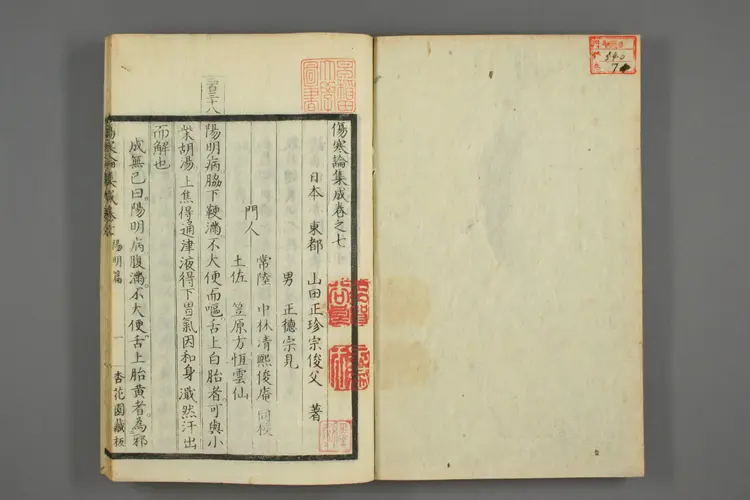 傷寒論集成卷之七
日本 東都 山田正珍宗俊父 著
男 正德宗見
門人
常陸 中林清熙俊庵 同校
土佐 笠原方恆雲仙
二百三十八
陽明病脇下鞕滿不大便而嘔舌上白胎者可與小
柴胡湯上焦得通津液得下胃氣因和身濈然汗出
而解也
成無己曰陽明病腹滿不大便舌上胎黄者為邪
傷寒論集成卷七
陽明篇
一
杏花園藏板
540
7